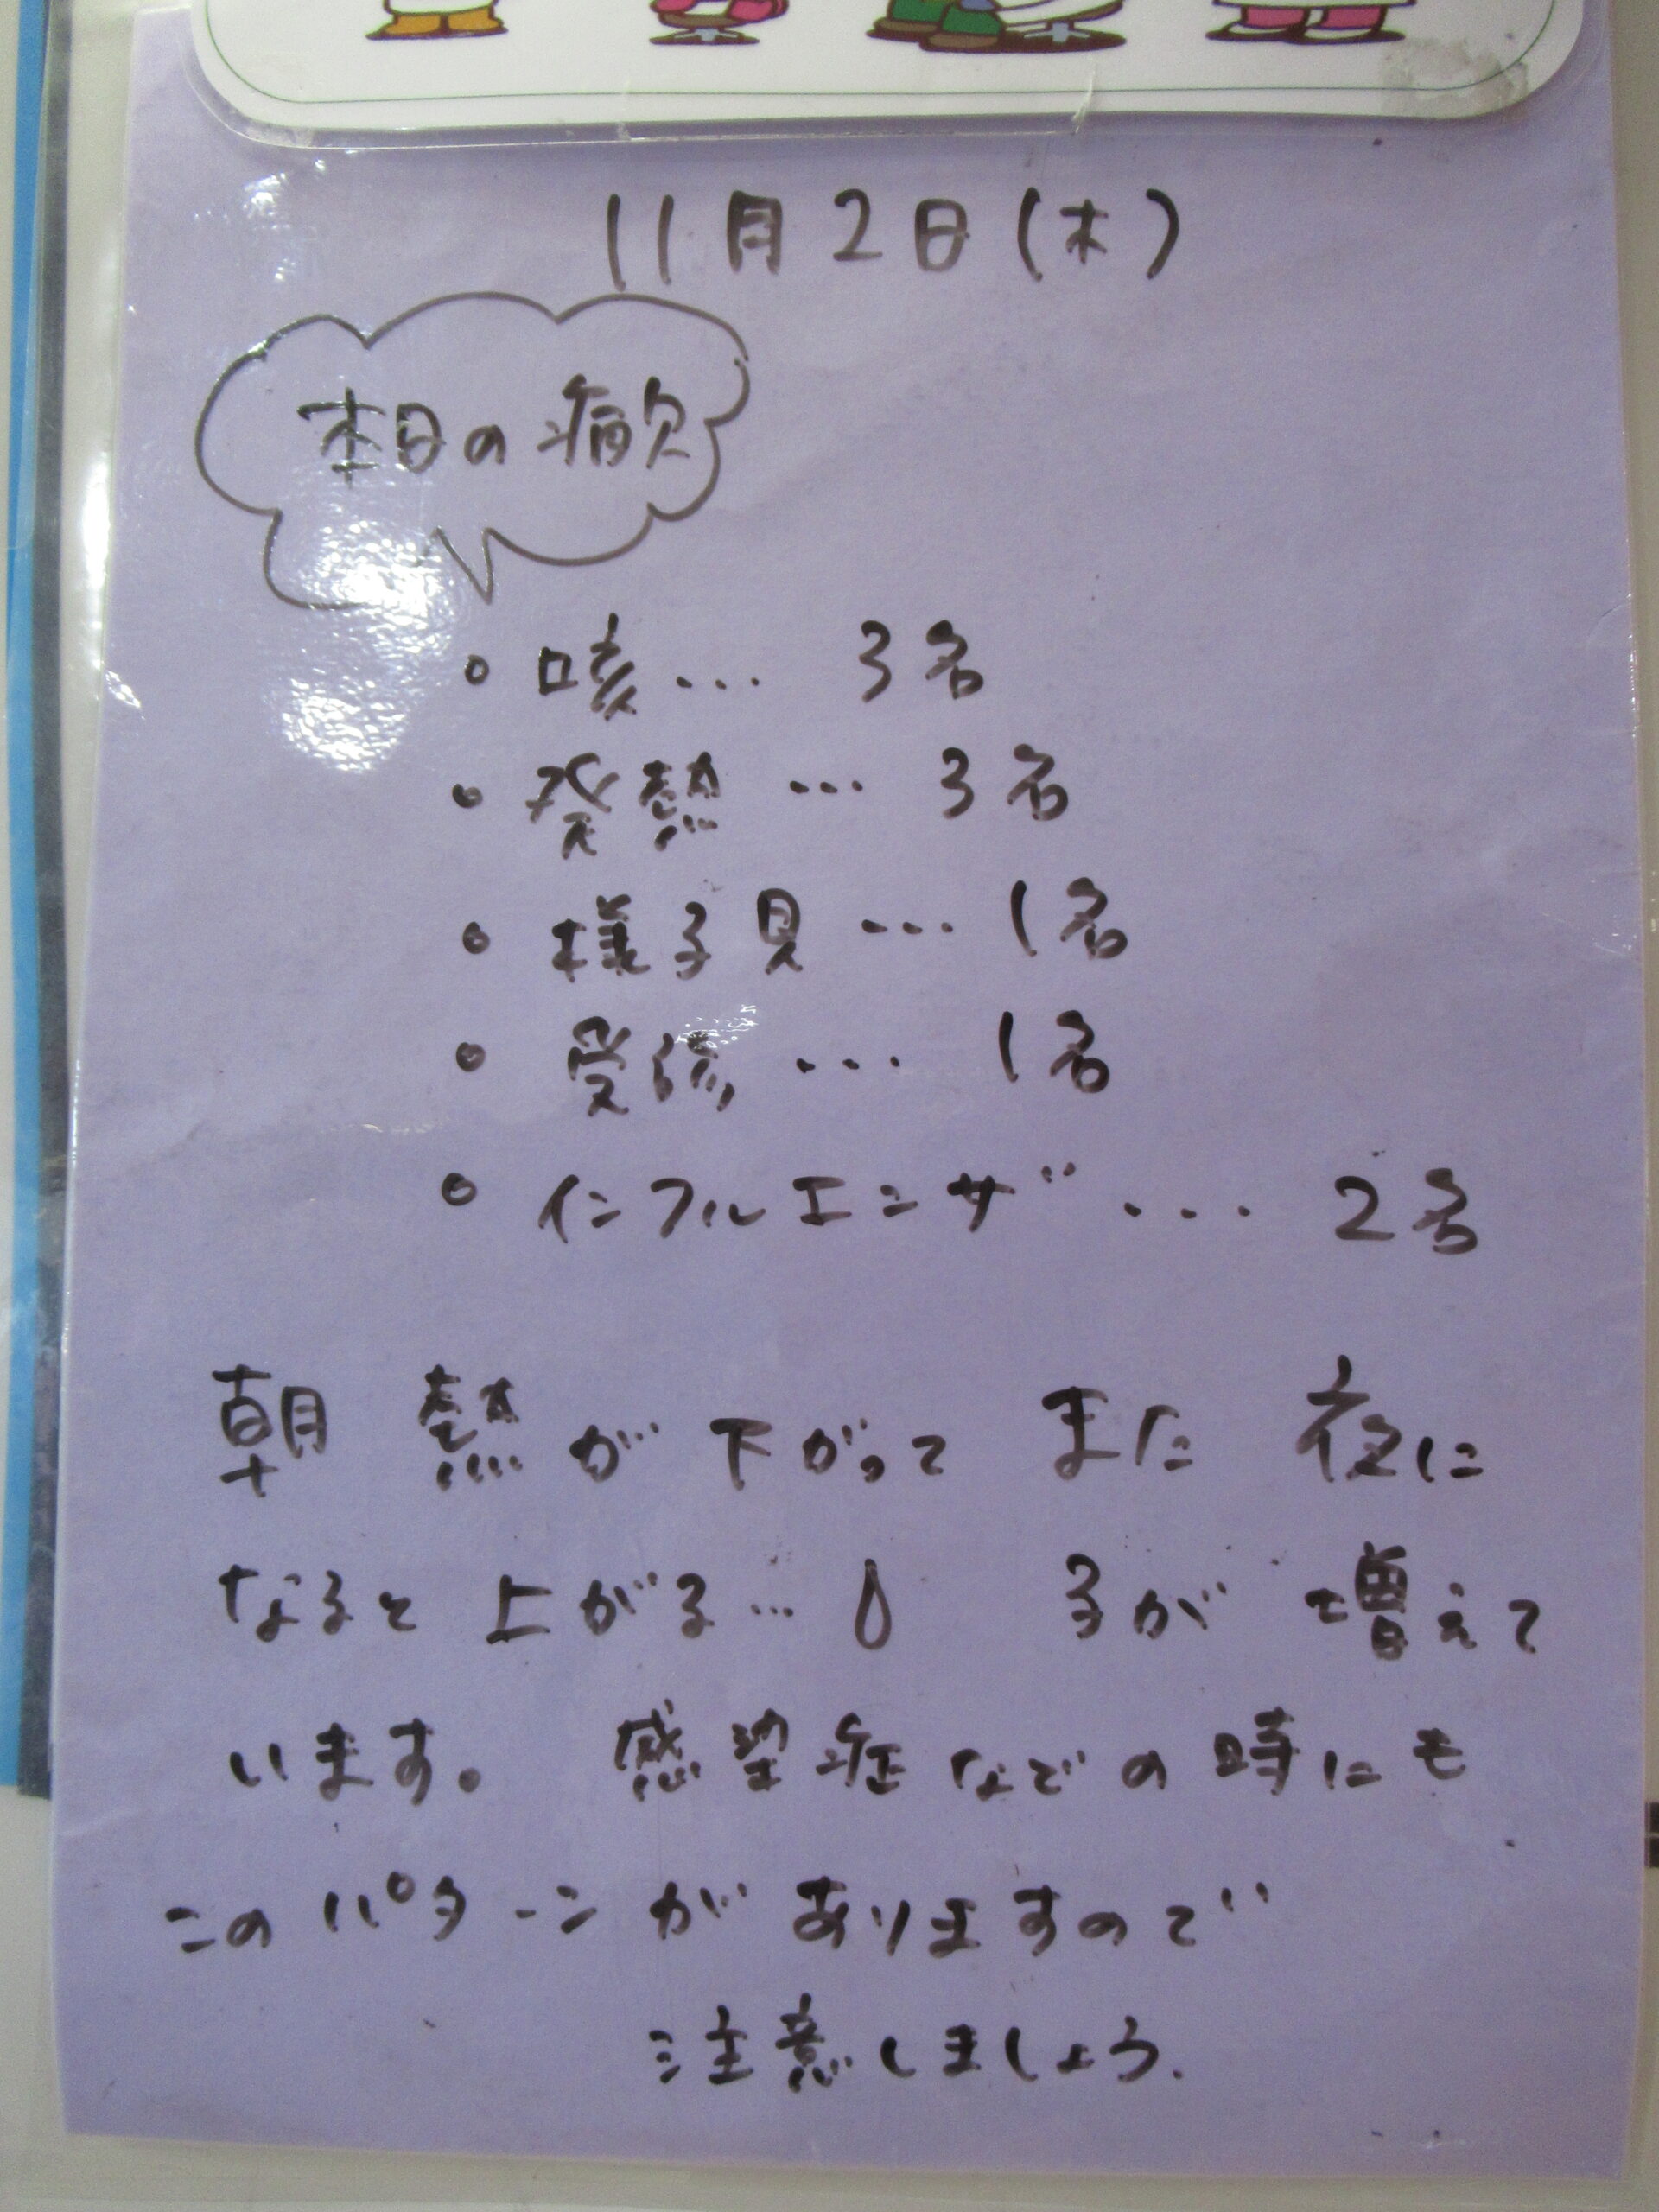 11月2日(木)
本日の病欠
・咳… 3名
・発熱… 3名
・様子見… 1名
・受診… 1名
・インフルエンザ… 2名
朝 熱が下がって また 夜に
なると 上がる… 子が 増えて
います。 感染症などの時にも
このパターンがありますので
注意しましょう.